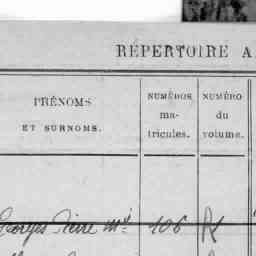 RÉPERTOIRE A
PRÉNOMS
ET SURNOMS.
NUMÉROS
ma-
tricules.
NUMÉRO
du
volume.
Georges Pierre Mel 106 R1